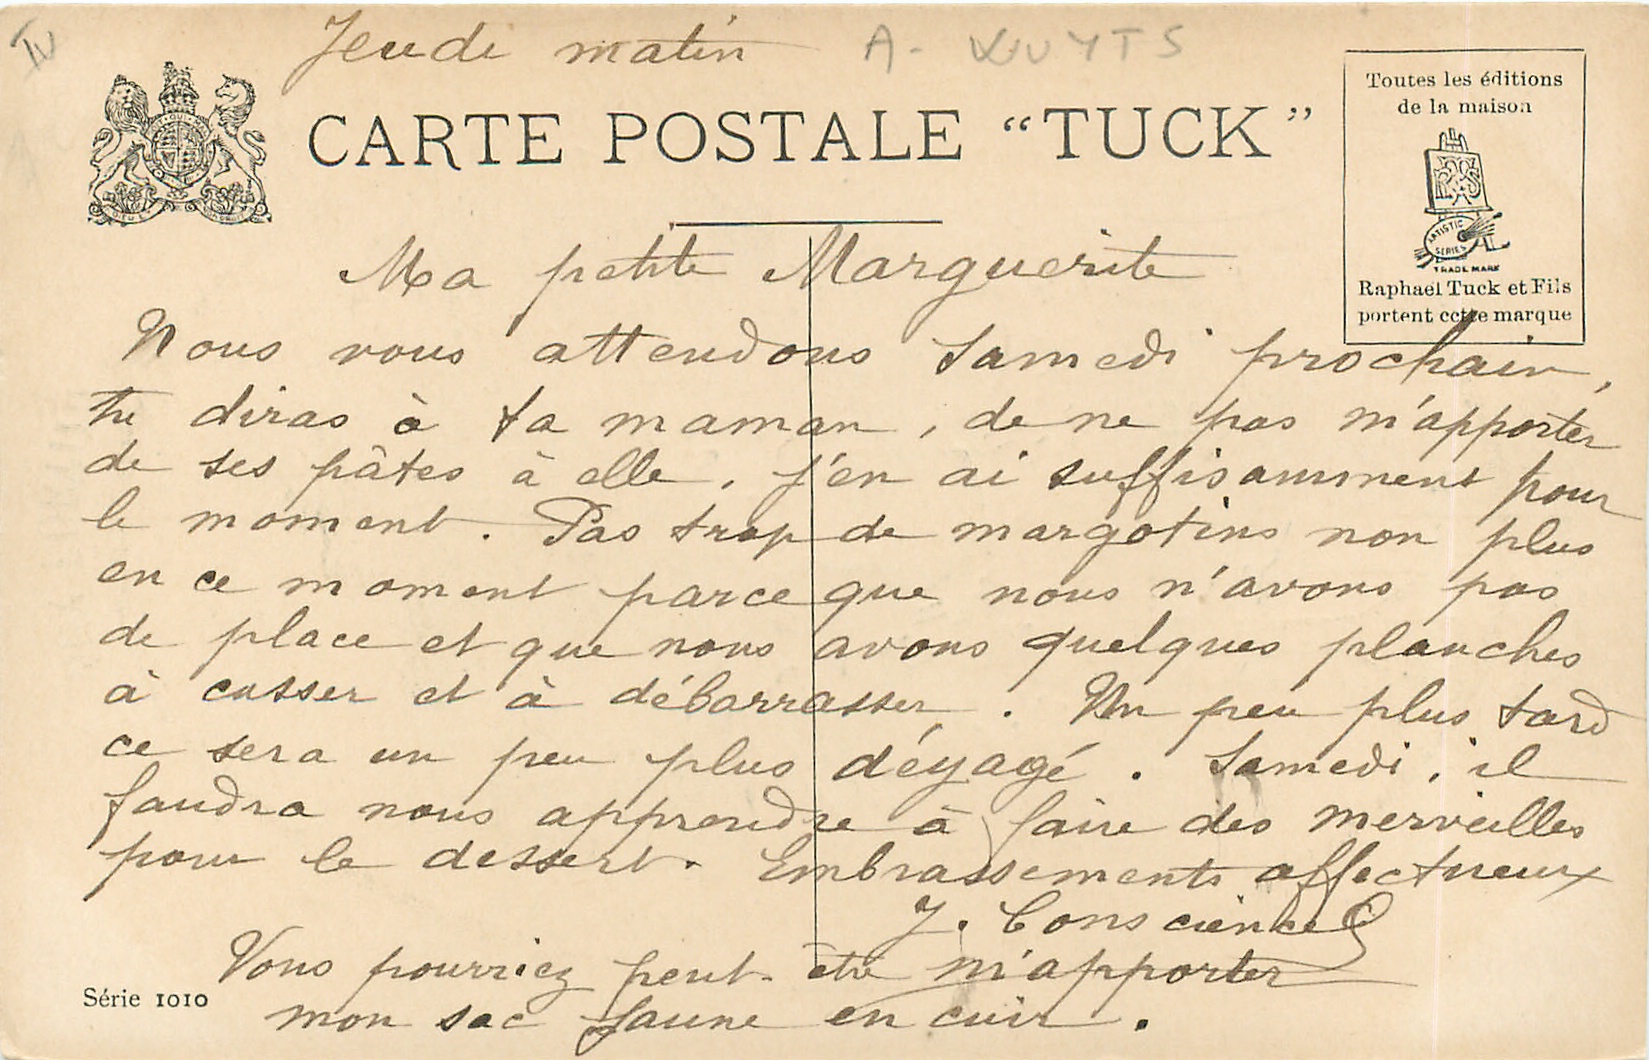 IV
Jeudi matin
A. WUYTS
CARTE POSTALE “TUCK”
Toutes les éditions
de la maison
ARTISTIC
SERIES
TRADE MARK
Raphael Tuck et Fils
portent cette marque
Ma petite Marguerite
Nous vous attendons samedi prochain,
tu diras à ta maman, de ne pas m'apporter
de ses pâtes à elle, j'en ai suffisamment pour
le moment. Pas trop de margotins non plus
en ce moment parce que nous n'avons pas
de place et que nous avons quelques planches
à casser et à débarrasser. Un peu plus tard
ce sera un peu plus dégagé. Samedi, il
faudra nous apprendre à faire des merveilles
pour le dessert. Embrassements affectueux
J. Conscience
Vous pourriez peut-être m'apporter
mon sac jaune en cuir.
Série 1010